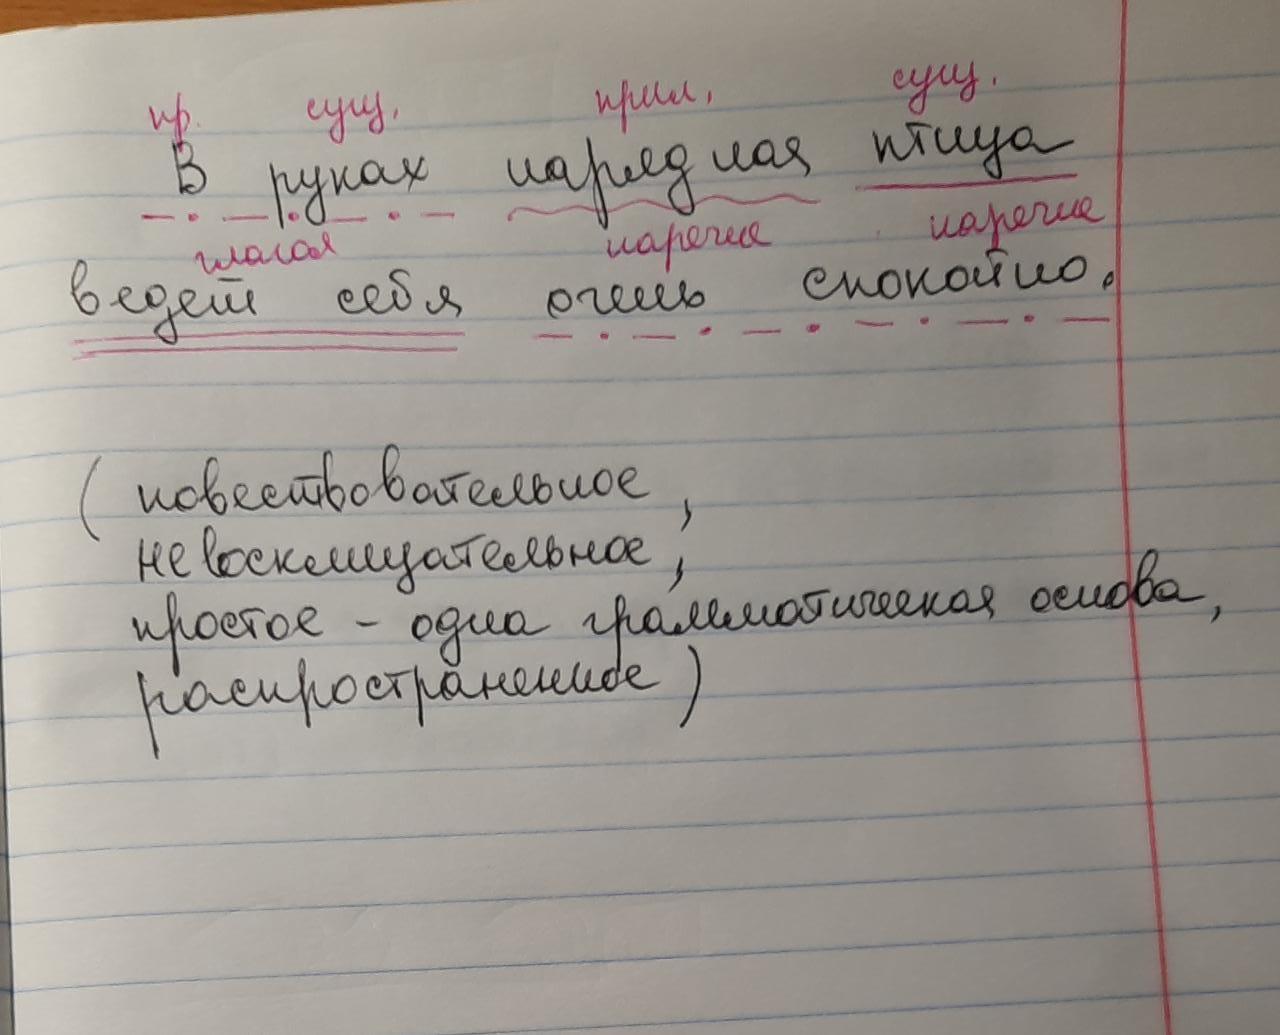 пр. сущ. прил. сущ.
В руках нарядная птица
глагол наречие наречие
ведет себя очень спокойно.
(повествовательное,
невосклицательное,
простое - одна грамматическая основа,
распространенное)